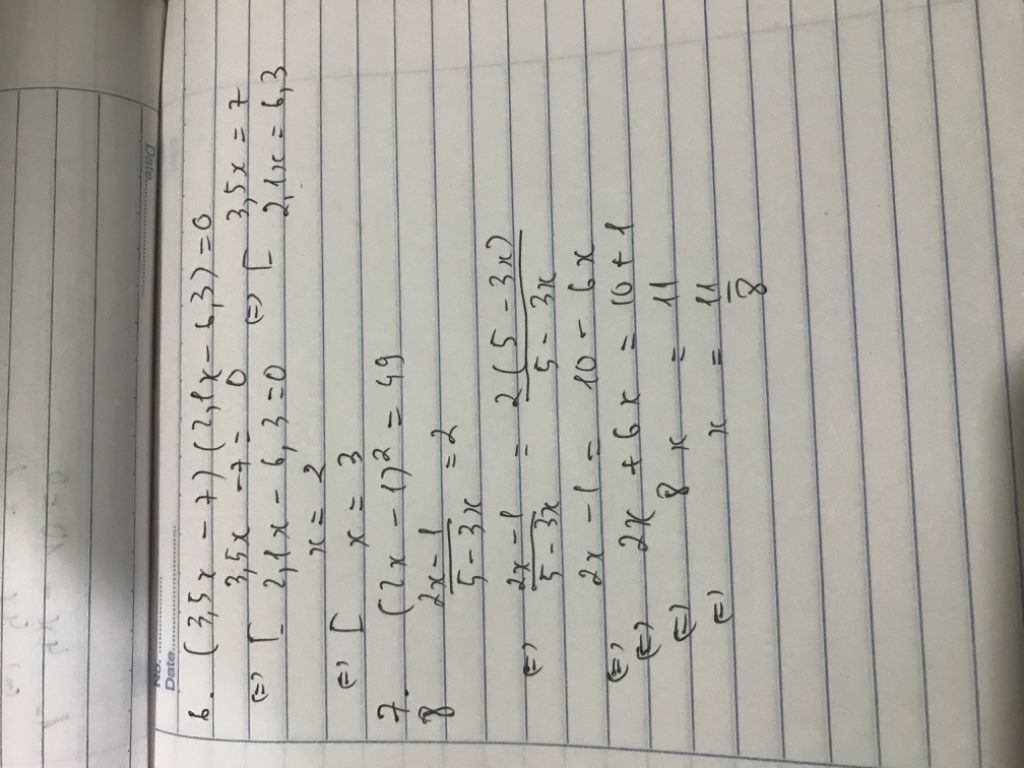 No. ............
Date. ....................
Date ............
6. (3,5x - 7)(2,1x - 6,3) = 0
(=) [ 3,5x - 7 = 0 (=) [ 3,5x = 7
2,1x - 6,3 = 0 2,1x = 6,3
(=) [ x = 2
x = 3
7. (2x - 1)² = 49
8 (2x - 1)/(5 - 3x) = 2
(=) (2x - 1)/(5 - 3x) = (2(5 - 3x))/(5 - 3x)
(=) 2x - 1 = 10 - 6x
(=) 2x + 6x = 10 + 1
(=) 8x = 11
(=) x = 11/8